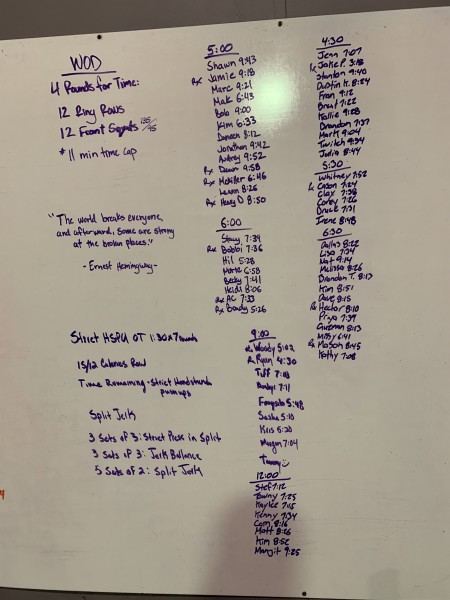 WOD
4 Rounds for Time:
12 Ring Rows
12 Front Squats 135/95
* 11 min time cap
"The world breaks everyone,
and afterward, some are strong
at the broken places."
- Ernest Hemingway -
Strict HSPU OT 1:30 x 7 rounds
15/12 Calories Row
Time Remaining - Strict Handstand
pushups
Split Jerk
3 Sets of 3: Strict Press in Split
3 Sets of 3: Jerk Balance
5 Sets of 2: Split Jerk
5:00
Shawn 9:43
Rx Jamie 9:18
Marc 9:21
Mak 6:43
Bob 9:00
Kim 6:33
Daneen 8:12
Jonathan 9:42
Audrey 9:52
Rx Dawn 9:58
Rx McAlister 6:46
Lauren 8:26
Rx Henry D 8:50
6:00
Stacy 7:39
Rx Bobbi 7:36
Hil 5:28
6:58
Becky 7:41
Heidi 8:06
Rx AC 7:33
Rx Brady 5:26
9:00
Rx Woody 5:02
Rx Ryan 4:30
Tiff 7:18
7:11
5:48
Sasha 5:10
Kris 6:20
Morgan 7:04
Tammy
12:00
Stef 7:12
Tawny 7:25
Kaylee 7:15
Kenny 7:34
Cam 8:16
Matt 8:26
Kim 8:52
Margit 9:25
4:30
Jenn 7:07
Rx Jake P. 3:18
Stanton 9:40
Dustin K. 8:24
Fran 9:12
Brent 7:22
Kallie 9:28
Brandon 7:37
Mark 9:04
Twitch 9:34
Julia 8:44
5:30
Whitney 7:52
Rx Cason 7:24
Clay 7:38
Corey 7:26
Druck 7:31
Irene 8:48
6:30
Dallas 8:22
Lisa 7:34
Nat 9:14
Melissa 8:26
Brandon T. 8:13
Kim 8:51
Dave 8:15
Rx Hector 8:10
Priya 7:39
Guzman 8:13
Missy 6:41
Rx Mason 8:45
Kathy 7:08